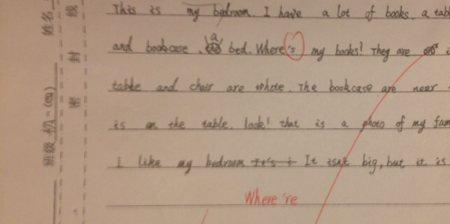 This is my bedroom. I have a lot of books. a tab
and bookcase. a bed. Where's my books? They are
table and chair are white. The bookcase are near
is on the table. look! that is a photo of my fam
I like my bedroom It's i It isn't big, but it is
Where 're
姓名
班级 初一(
线
封
密